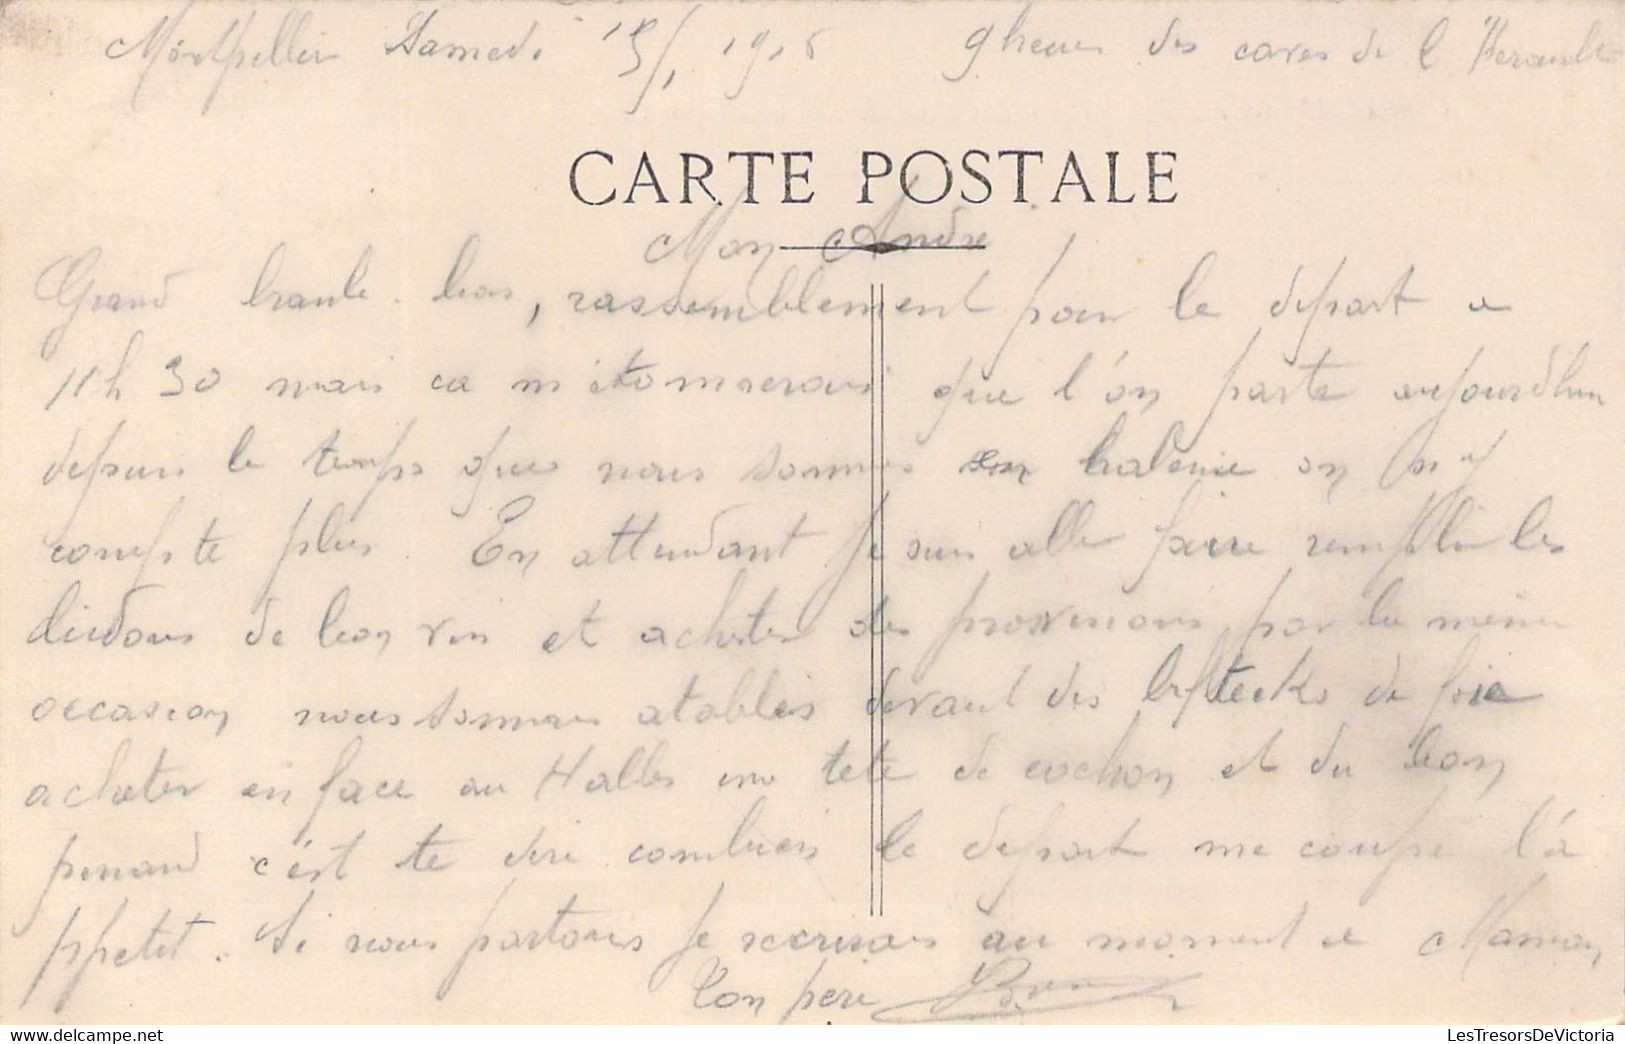 Montpellier Samedi 15/1 1916 9 heures des caves de l'Herault
CARTE POSTALE
Mon André
Grand branle-bas, rassemblement pour le depart a
11h 30 mais ca m'etonnerais que l'on parte aujourdhui
depuis le temps que nous sommes en haleine on n'y
compte plus. En attendant je suis allé faire remplir les
bidons de bon vin et acheter des provisions, par la même
occasion nous sommes atablés devant des biftecks de foie
acheter en face au Halles une tete de cochon et du bon
penard c'est te dire combien le depart me coupe l'a
ppetit. Si nous partons je recrirais au moment a Maman
Ton père
LesTresorsDeVictoria.com